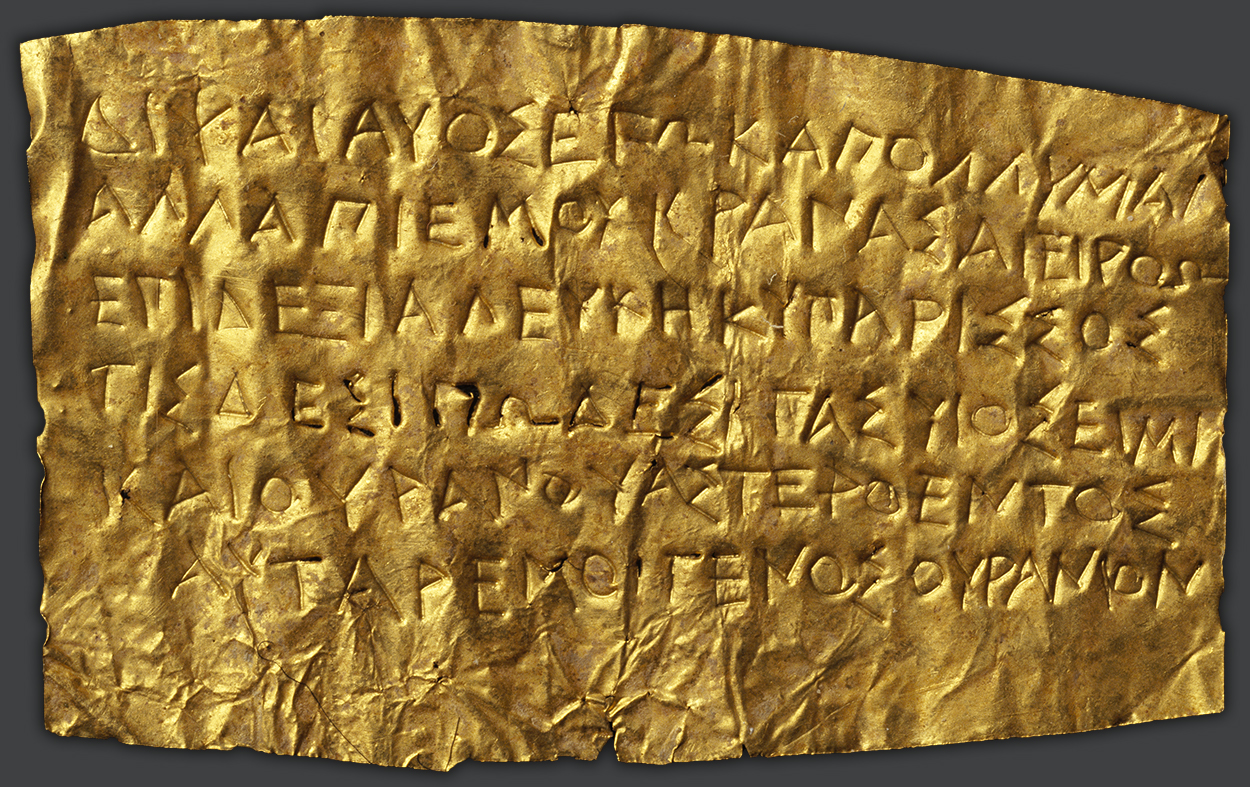 ΔΙΨΑΙΑΥΟΣΕΓΩΚΑΠΟΛΛΥΜΑΙ
ΑΛΛΑΠΙΕΜΟΥΚΡΑΝΑΣΑΙΕΙΡΟΩ
ΕΠΙΔΕΞΙΑΛΕΥΚΗΚΥΠΑΡΙΣΣΟΣ
ΤΙΣΔΕΣΙΠΩΔΕΣΓΑΣΥΙΟΣΕΙΜΙ
ΚΑΙΟΥΡΑΝΟΥΑΣΤΕΡΟΕΝΤΟΣ
ΑΥΤΑΡΕΜΟΙΓΕΝΟΣΟΥΡΑΝΙΟΝ